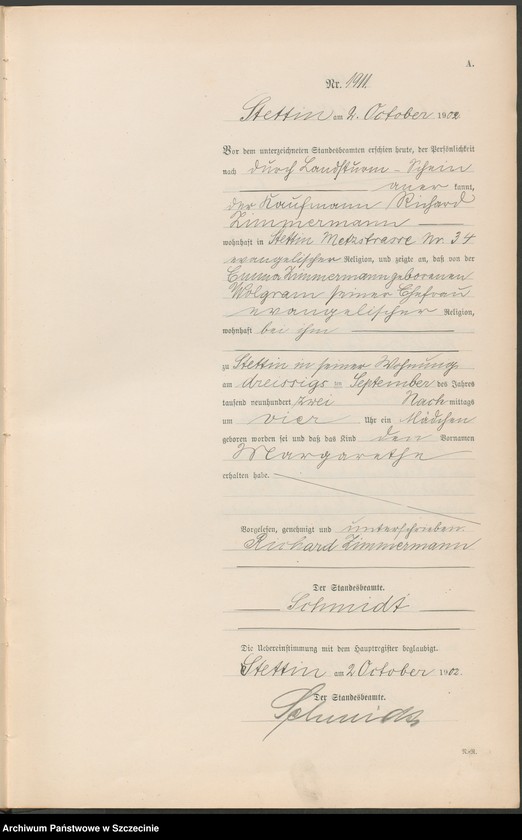 A.
Nr. 1911.
Stettin am 2. October 1902
Vor dem unterzeichneten Standesbeamten erschien heute, der Persönlichkeit
nach durch Landsturm-Schein
aner kannt,
der Kaufmann Richard
Zimmermann
wohnhaft in Stettin Metzstrasse Nr. 34
evangelischer Religion, und zeigte an, daß von der
Emma Zimmermann geborenen
Wolgram seiner Ehefrau
evangelischer Religion,
wohnhaft bei ihm
zu Stettin in seiner Wohnung
am dreissigs ten September des Jahres
tausend neunhundert zwei Nach mittags
um vier Uhr ein Mädchen
geboren worden sei und daß das Kind den Vornamen
Margarethe
erhalten habe.
Vorgelesen, genehmigt und unterschrieben.
Richard Zimmermann
Der Standesbeamte.
Schmidt
Die Uebereinstimmung mit dem Hauptregister beglaubigt.
Stettin am 2 October 1902.
Der Standesbeamte.
Schmidt
Archiwum Państwowe w Szczecinie